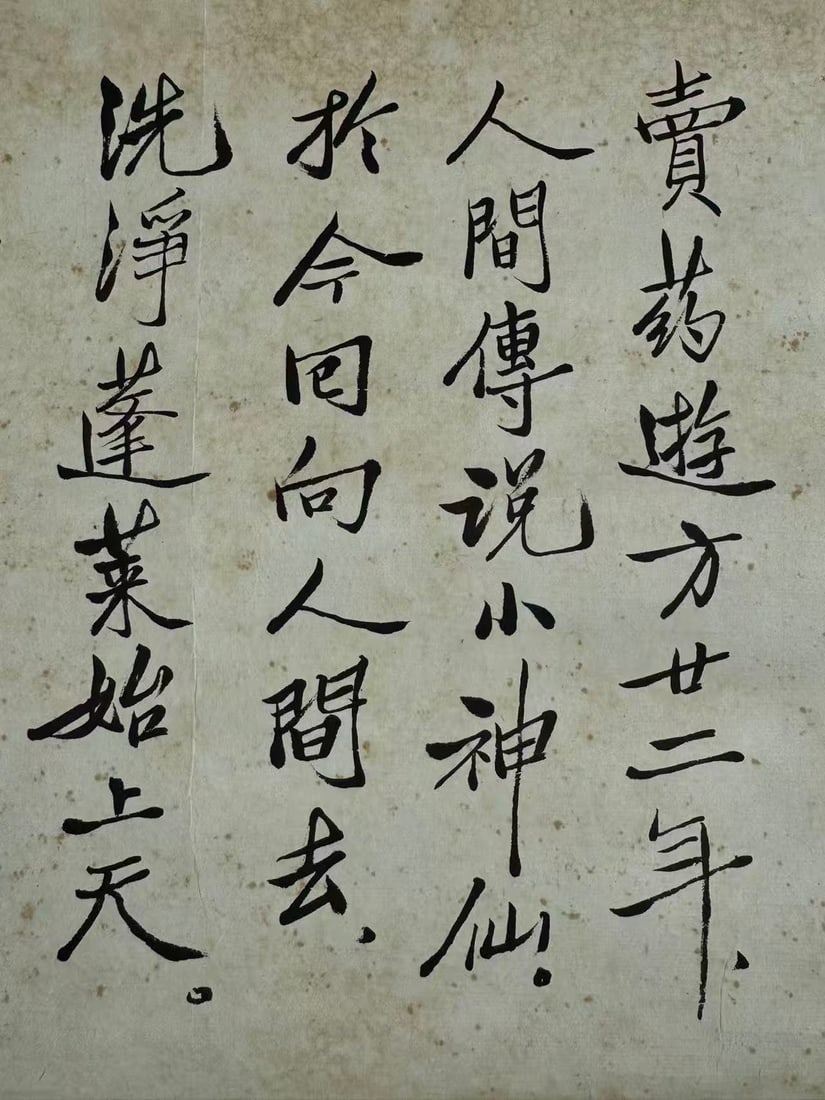 賣药遊方廿二年、
人間傳说小神仙。
於今回向人間去、
洗淨蓬莱始上天。